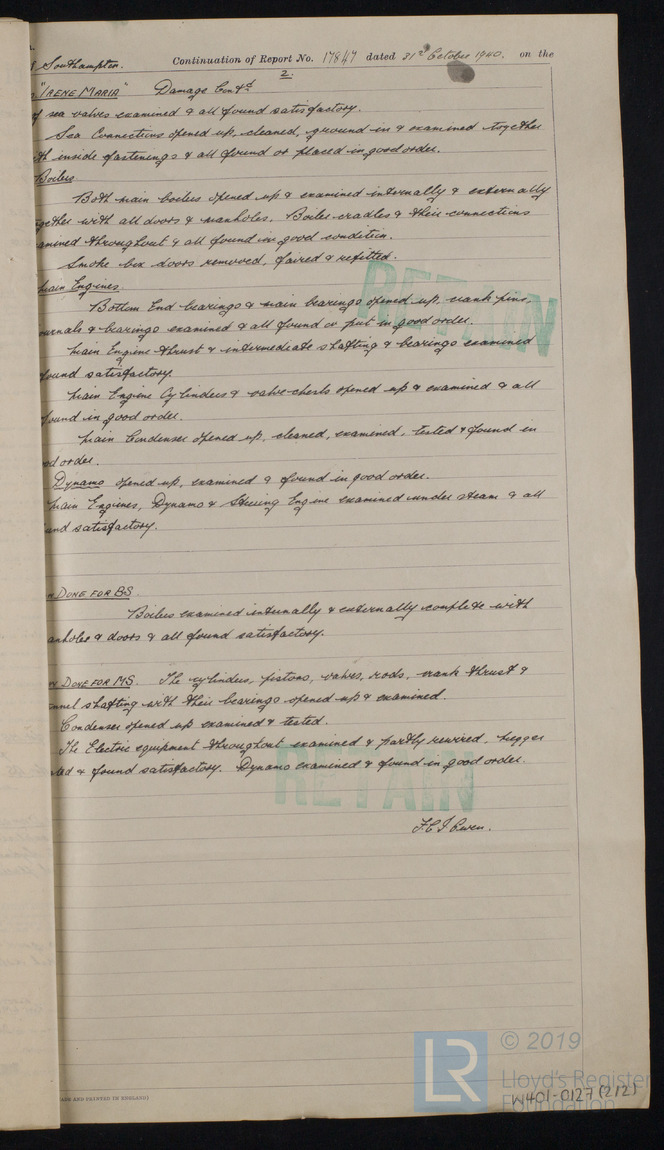 Southampton. Continuation of Report No. 17847 dated 31st October 1940. on the
2.
"IRENE MARIA" Damage Contd.
of sea valves examined & all found satisfactory.
Sea Connections opened up, cleaned, ground in & examined together
th inside fastenings & all found or placed in good order.
Boilers
Both main boilers opened up & examined internally & externally
gether with all doors & manholes. Boiler cradles & their connections
amined throughout & all found in good condition.
Smoke box doors removed, faired & refitted.
Main Engines.
Bottom End bearings & main bearings opened up, crank pins,
ournals & bearings examined & all found or put in good order.
Main Engine thrust & intermediate shafting & bearings examined
found satisfactory.
Main Engine Cylinders & valve chests opened up & examined & all
found in good order.
Main Condenser opened up, cleaned, examined, tested & found in
od order.
Dynamo opened up, examined & found in good order.
Main Engines, Dynamo & Steering Engine examined under steam & all
und satisfactory.
DONE FOR BS.
Boilers examined internally & externally complete with
anholes & doors & all found satisfactory.
DONE FOR MS. The cylinders, pistons, valves, rods, crank thrust &
nnel shafting with their bearings opened up & examined.
Condenser opened up examined & tested.
The Electric equipment throughout examined & partly rewired, megger
ted & found satisfactory. Dynamo examined & found in good order.
RETAIN
RETAIN
F.C.J. Owen.
MADE AND PRINTED IN ENGLAND)
LR
© 2019
Lloyd's Register
Foundation
W401-0127 (2/2)